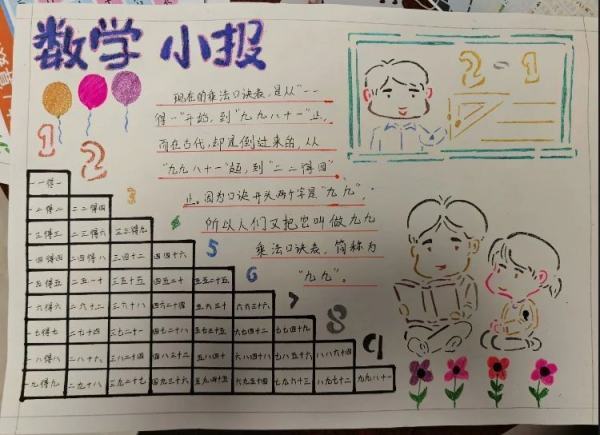 数学 小报
现在的乘法口诀表,是从“一一
得一”开始,到“九九八十一”止,
而在古代,却是倒过来的,从
“九九八十一”起,到“二二得四”
止。因为口诀开头两个字是“九九”,
所以人们又把它叫做九九
乘法口诀表,简称为
“九九”。
2-1
1
2
3
4
5
6
7
8
9
一一得一
一二得二 二二得四
一三得三 二三得六 三三得九
一四得四 二四得八 三四十二 四四十六
一五得五 二五一十 三五十五 四五二十 五五二十五
一六得六 二六十二 三六十八 四六二十四 五六三十 六六三十六
一七得七 二七十四 三七二十一 四七二十八 五七三十五 六七四十二 七七四十九
一八得八 二八十六 三八二十四 四八三十二 五八四十 六八四十八 七八五十六 八八六十四
一九得九 二九十八 三九二十七 四九三十六 五九四十五 六九五十四 七九六十三 八九七十二 九九八十一